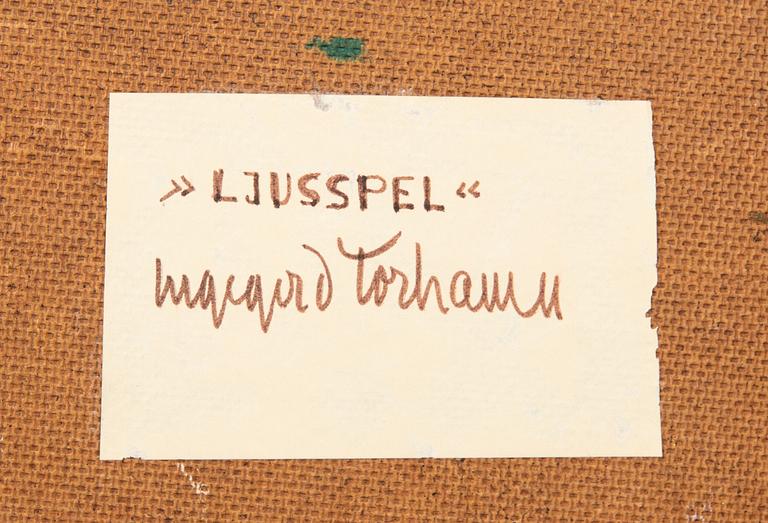 »LJUSSPEL«
Ingegerd Torhamn